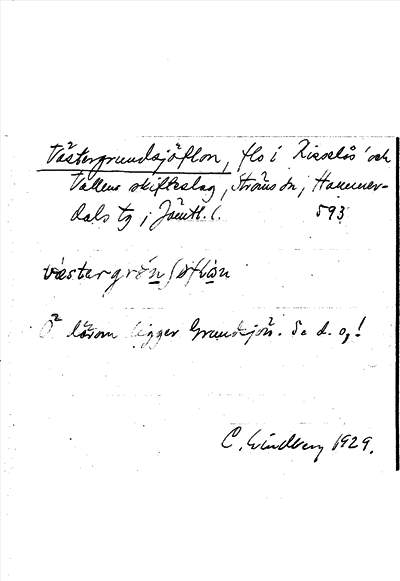 Västergrundsjöflon, flo i Risselås' och
Vallens skifteslag, Ströms sn, Hammer-
dals tg, Jämtl. l. 593
västergrōnʃøflɷn
Ö därom ligger Grundsjön. Se d. o!
C. Lindberg 1929.